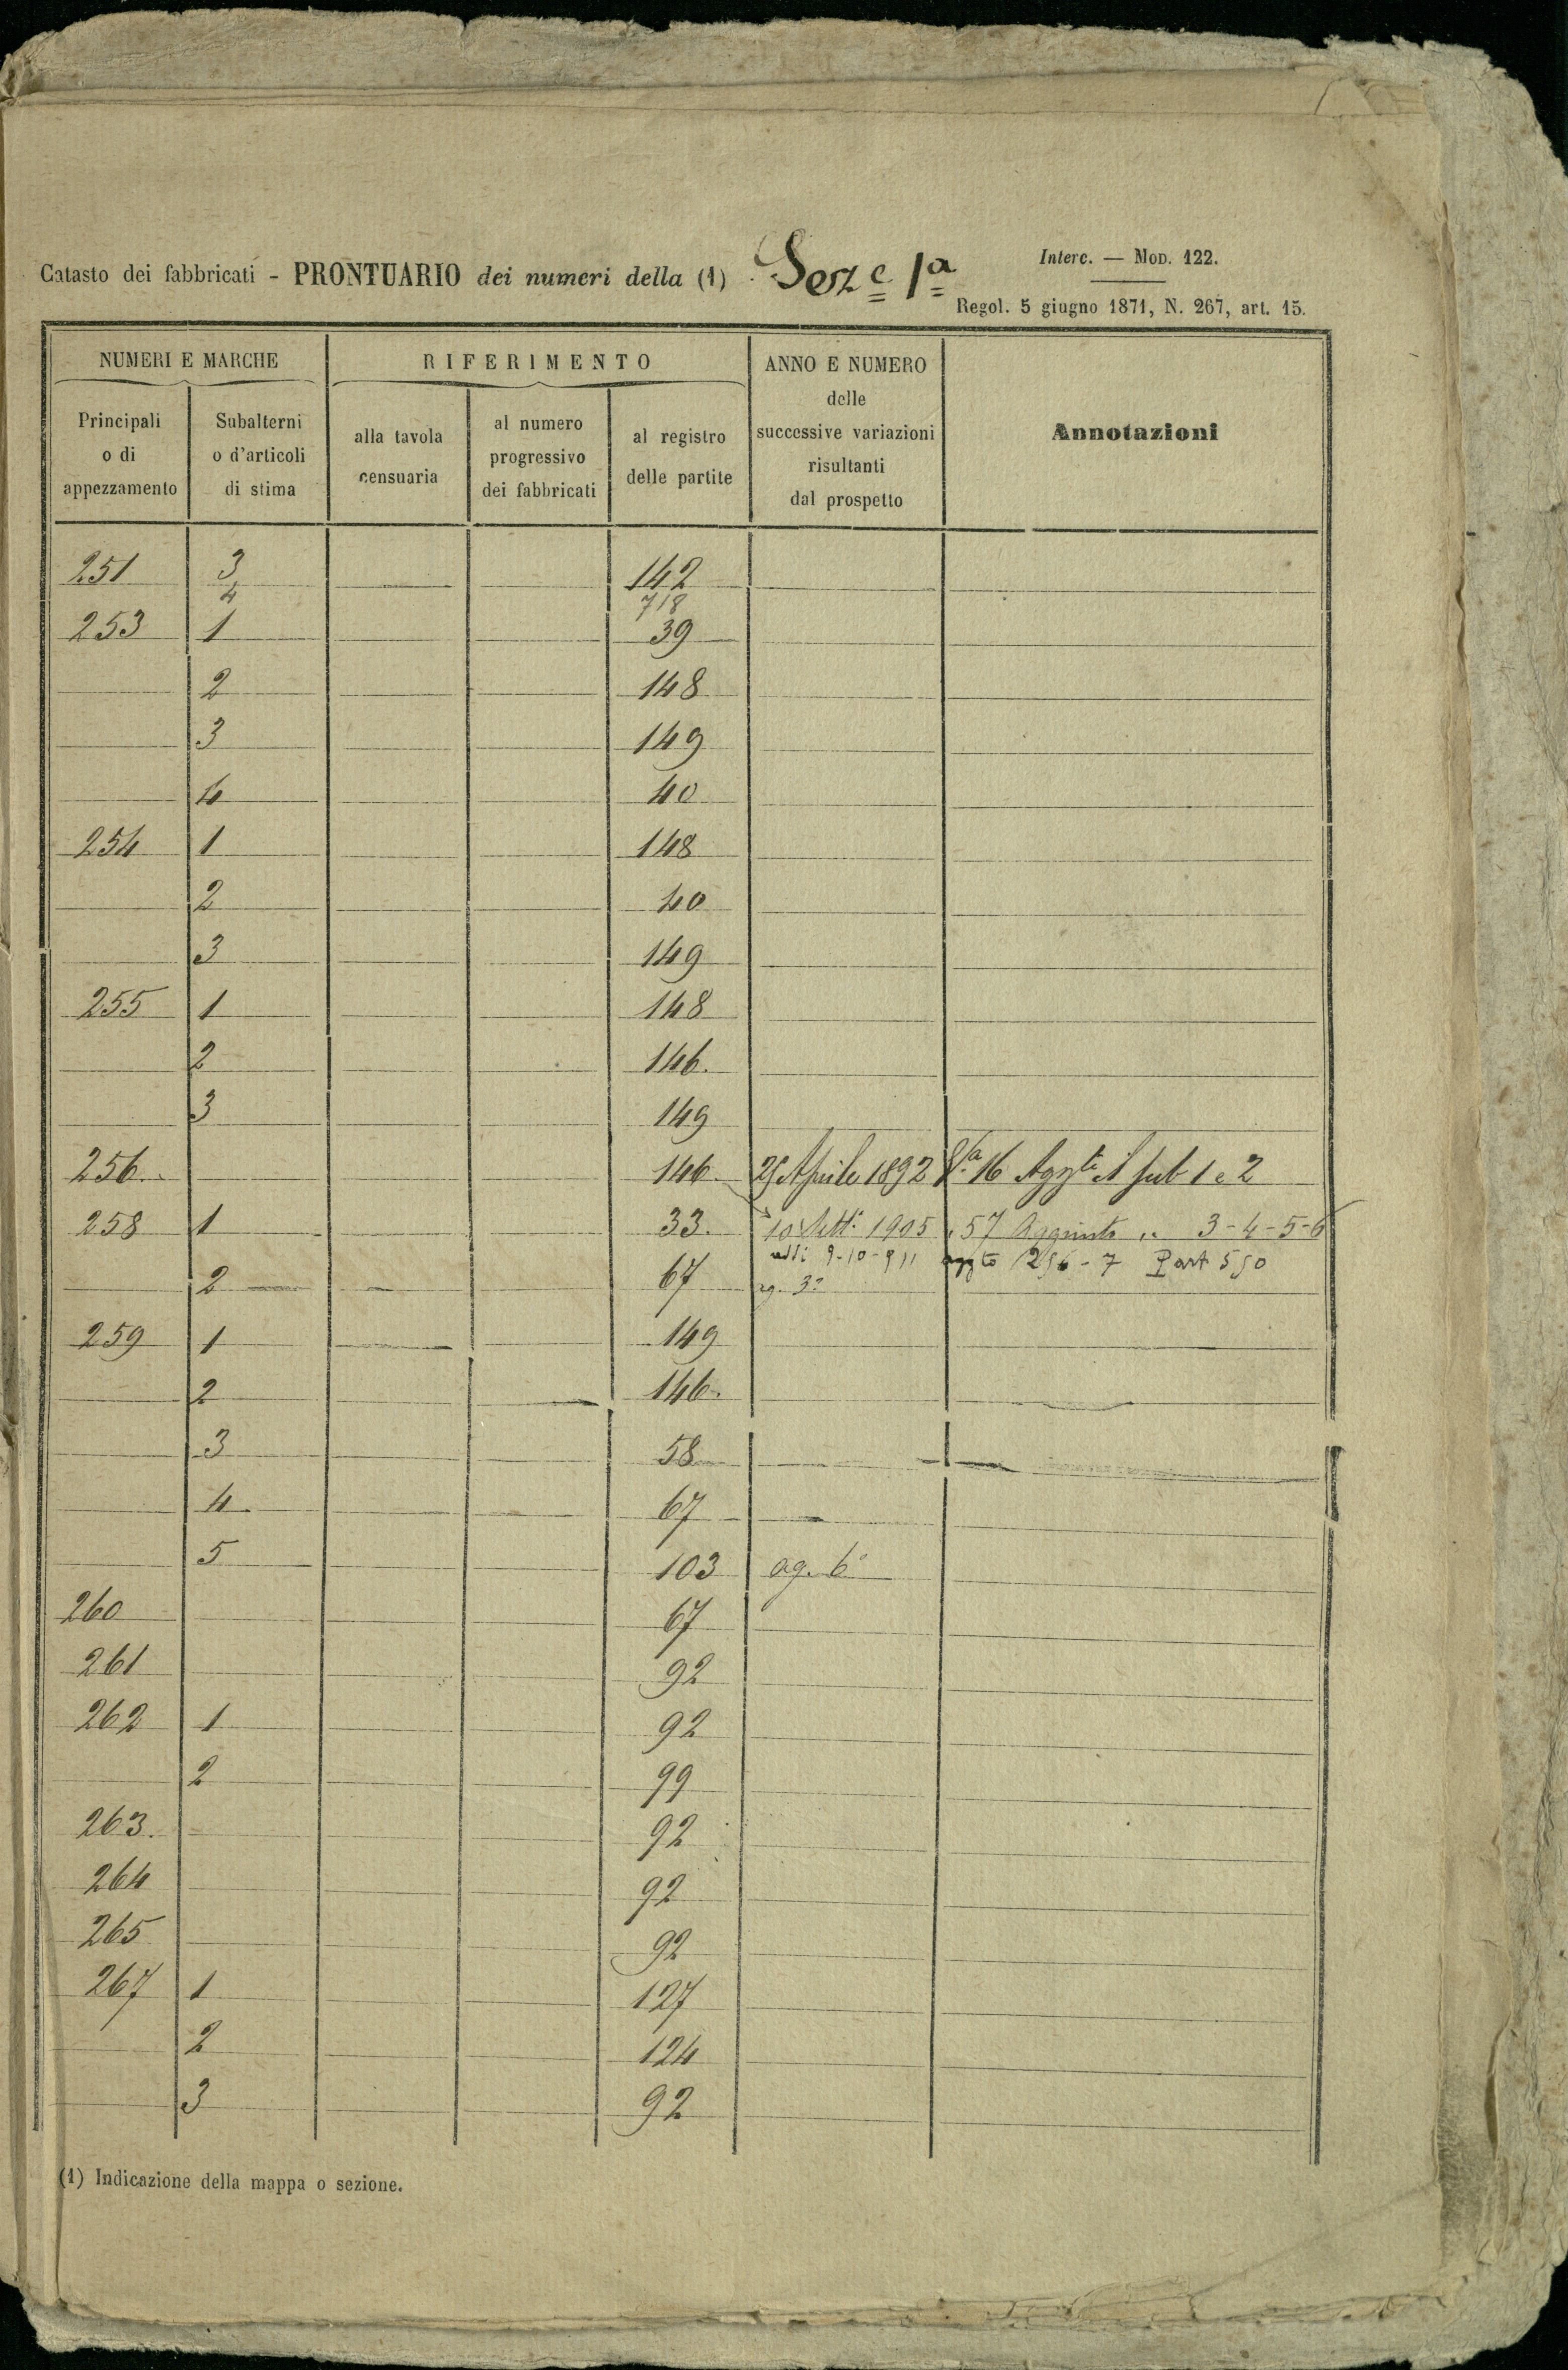 Catasto dei fabbricati - PRONTUARIO dei numeri della (1) Sez.e 1a
Interc. — Mod. 122.
Regol. 5 giugno 1871, N. 267, art. 15.
NUMERI E MARCHE
RIFERIMENTO
ANNO E NUMERO
delle
successive variazioni
risultanti
dal prospetto
Annotazioni
Principali
o di
appezzamento
Subalterni
o d'articoli
di stima
alla tavola
censuaria
al numero
progressivo
dei fabbricati
al registro
delle partite
251 3 142
4 718
253 1 39
2 148
3 149
4 40
254 1 148
2 40
3 149
255 1 148
2 146.
3 149
256. 146 29 Aprile 1892 16 Aggte sub 1 e 2
258 1 33. 10 Sett. 1905 57 Aggiunto „ 3-4-5-6
9-10-911 aggto 256-7 Part 550
2 67 ag. 3°
259 1 149
2 146.
3 58
4 67
5 103 ag. 6°
260 67
261 92
262 1 92
2 99
263. 92
264 92
265 92
267 1 127
2 124
3 92
(1) Indicazione della mappa o sezione.